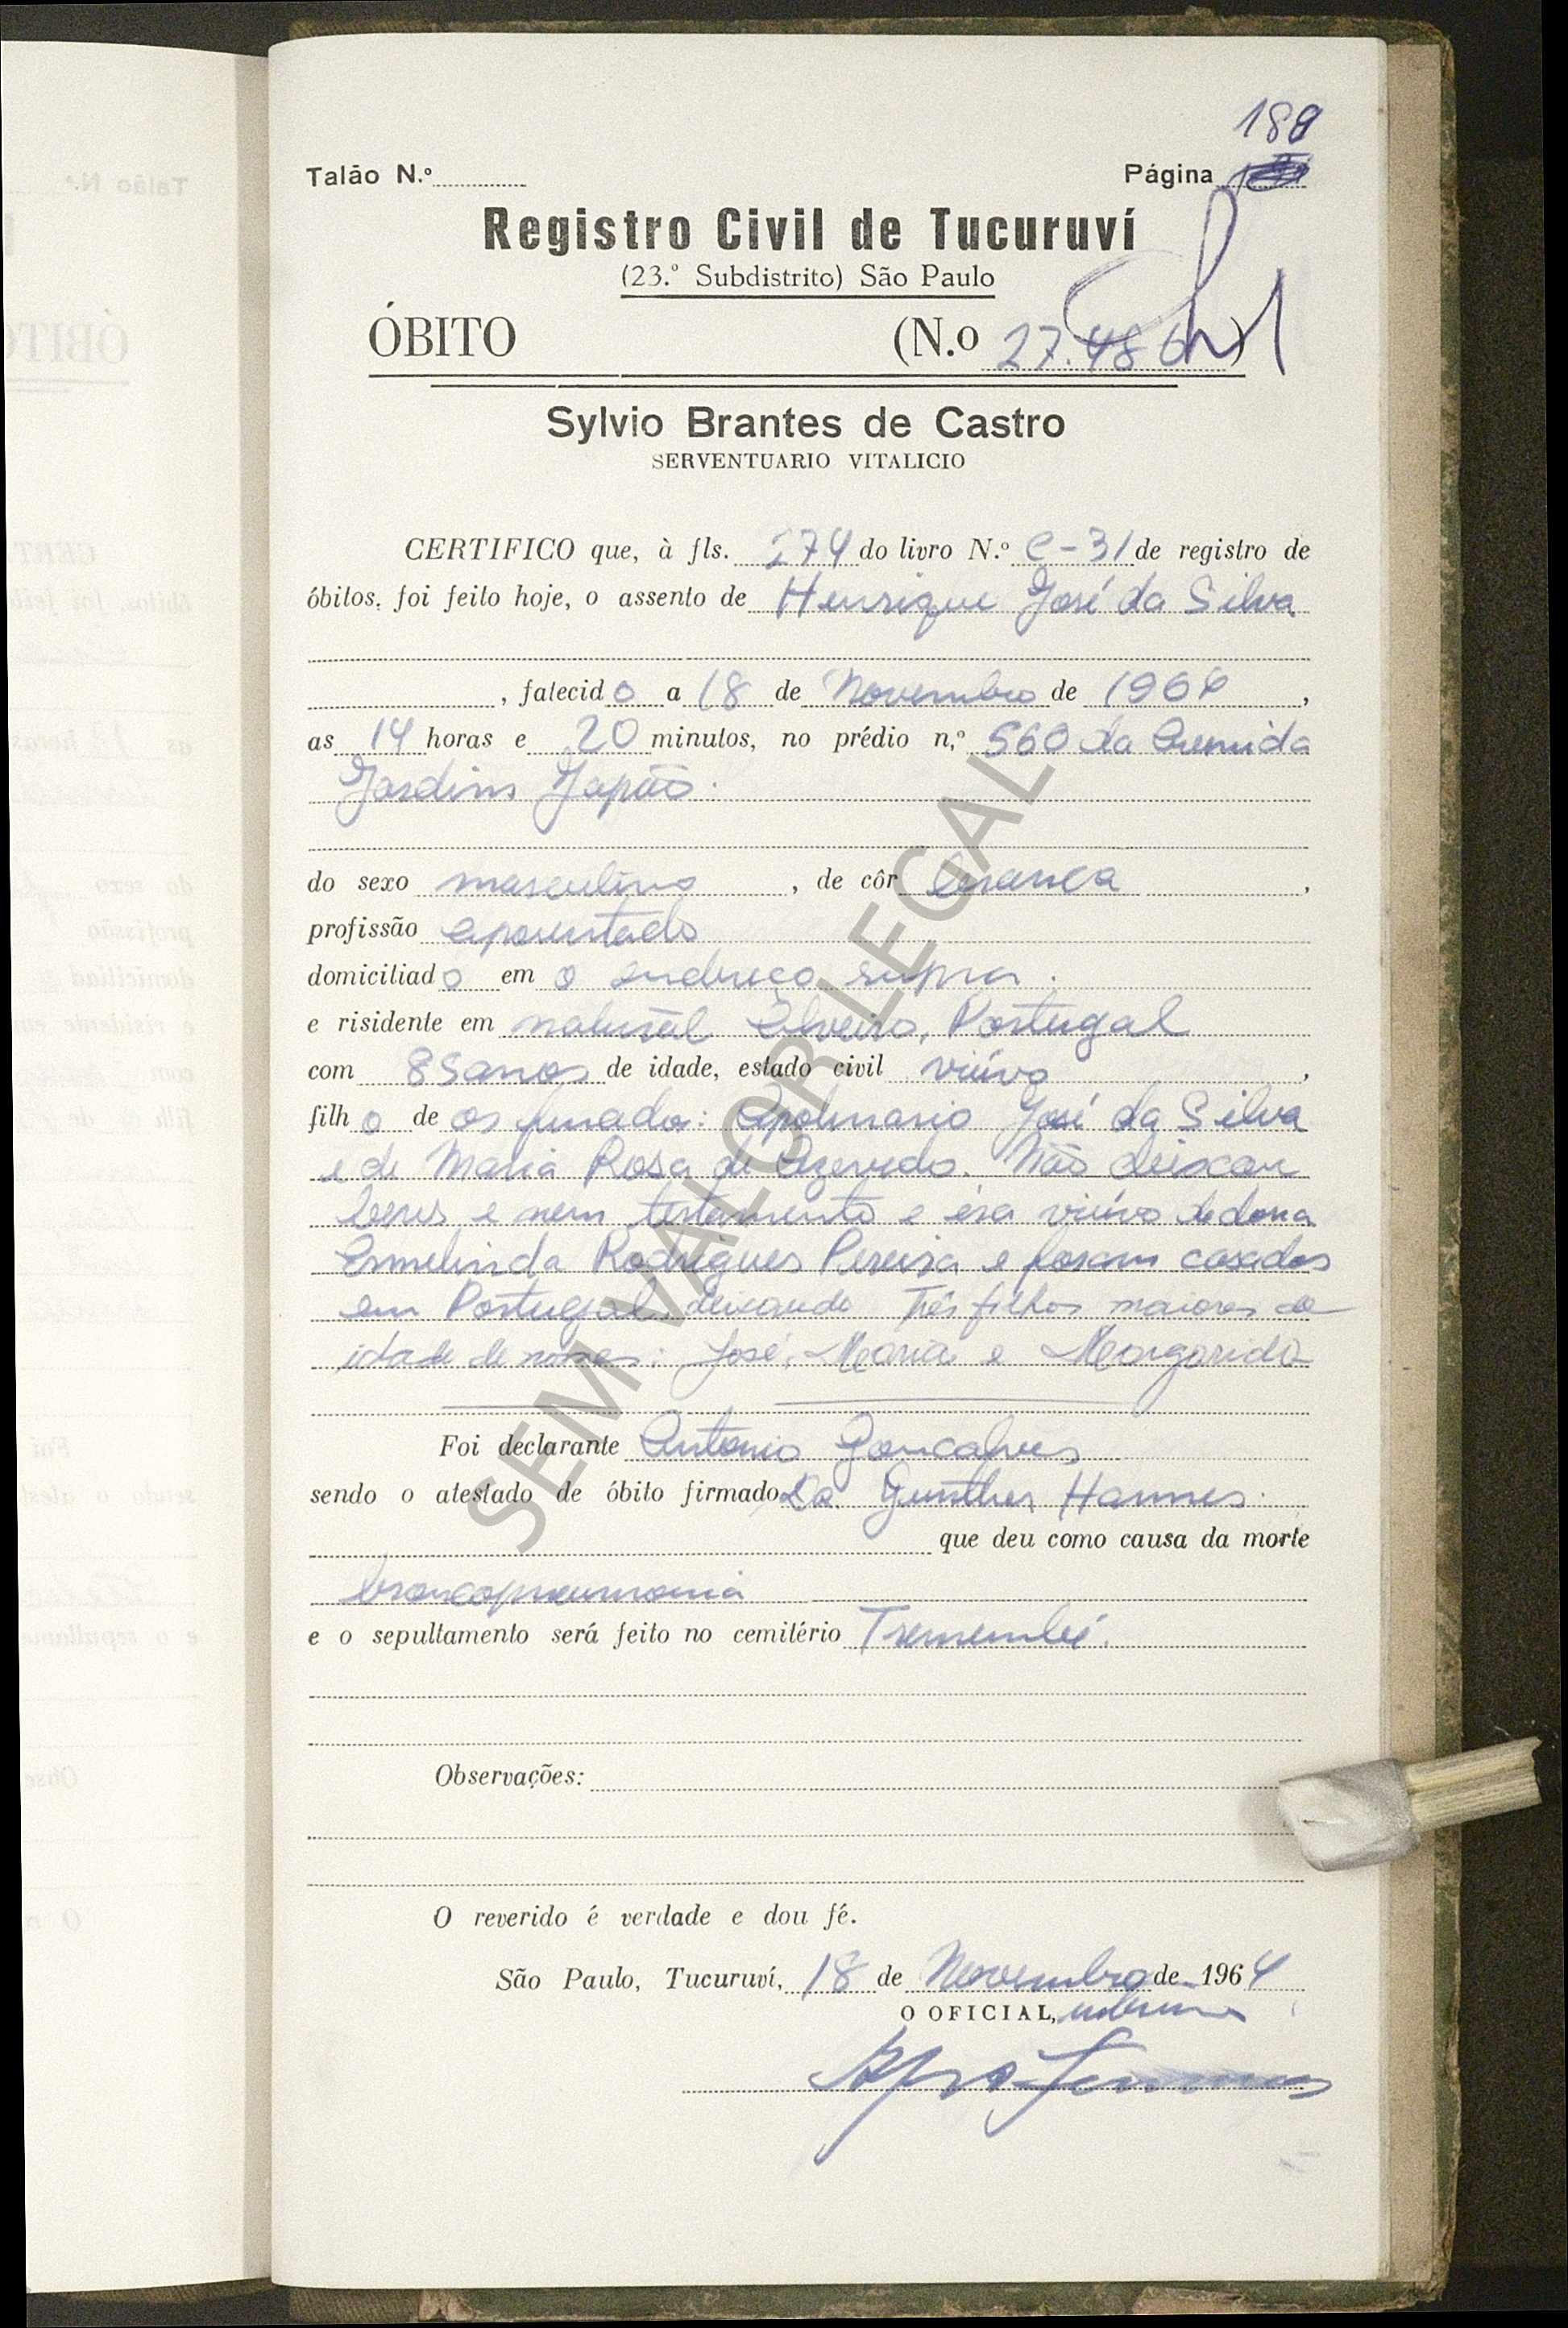 189
Talão N.º Página
Registro Civil de Tucuruví
(23.º Subdistrito) São Paulo
ÓBITO (N.o 27.486)
Sylvio Brantes de Castro
SERVENTUARIO VITALICIO
CERTIFICO que, à fls. 274 do livro N.º C-31 de registro de
óbitos, foi feito hoje, o assento de Henrique José da Silva
, falecido a 18 de Novembro de 1964,
as 14 horas e 20 minutos, no prédio n,º 560 da Avenida
Jardins Japão.
do sexo masculino, de côr branca,
profissão aposentado
domiciliado em o endereço supra.
e risidente em natural Aveiro, Portugal
com 85 anos de idade, estado civil viúvo,
filho de os finados: Apolinario José da Silva
e de Maria Rosa de Azevedo. Não deixou
bens e nem testamento e éra viúvo de dona
Ermelinda Rodrigues Pereira e foram casados
em Portugal, deixando Três filhos maiores de
idade de nomes: José, Maria e Margarida
Foi declarante Antonio Gonçalves
sendo o atestado de óbito firmado Dr. Gunther Hannes.
que deu como causa da morte
broncopneumonia
e o sepultamento será feito no cemitério Tremembé.
Observações:
O reverido é verdade e dou fé.
São Paulo, Tucuruví, 18 de Novembro de 1964
O OFICIAL, interino
SEM VALOR LEGAL